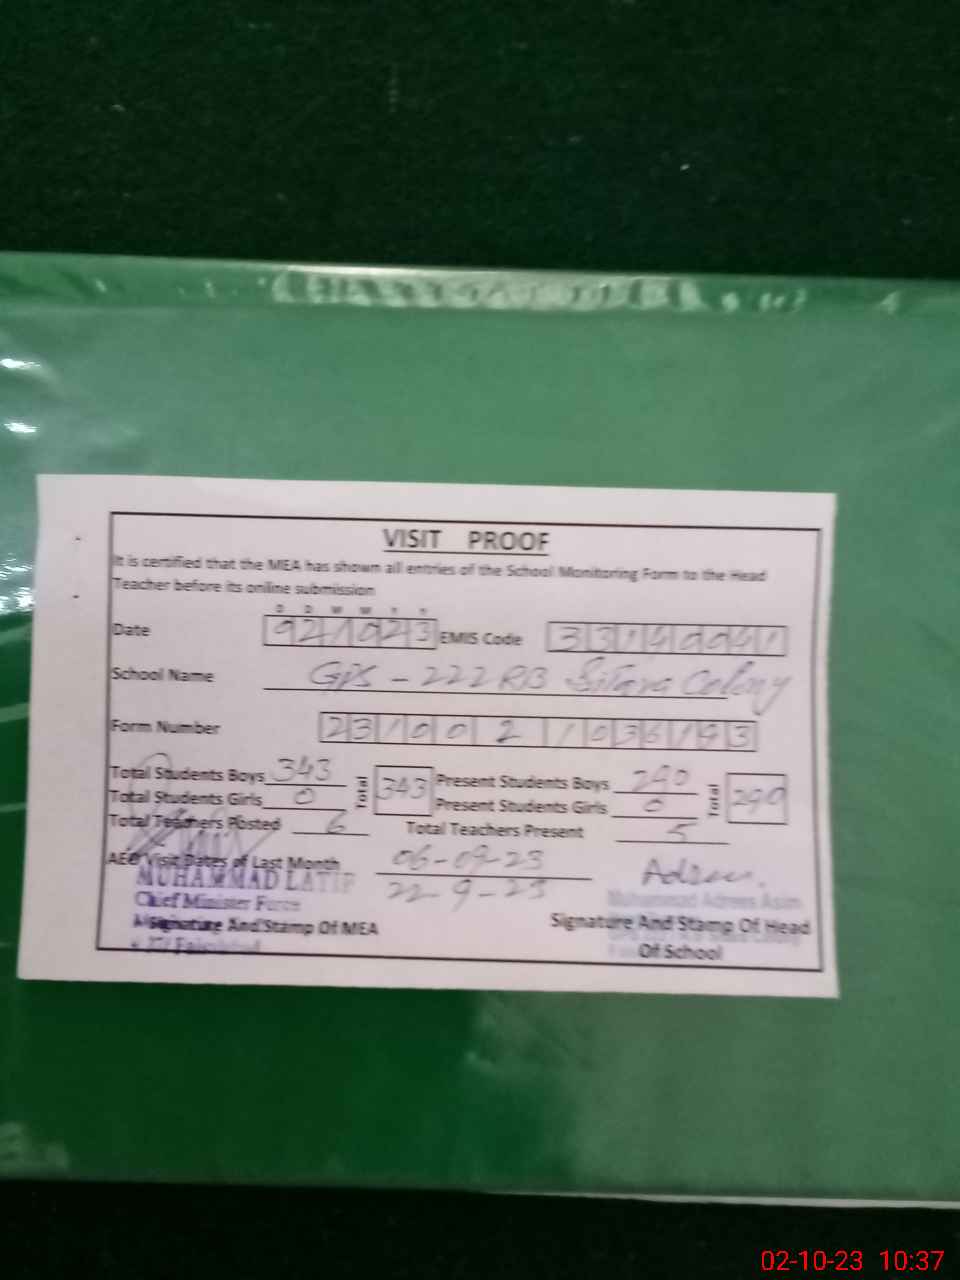 VISIT PROOF
It is certified that the MEA has shown all entries of the School Monitoring Form to the Head
Teacher before its online submission
D D M M Y Y
Date 021023 EMIS Code 33140041
School Name GPS - 222 RB Sitara Colony
Form Number 23/002/036193
Total Students Boys 343 Total 343 Present Students Boys 290 Total 290
Total Students Girls 0 Present Students Girls 0
Total Teachers Posted 6 Total Teachers Present 5
AEO Visit Dates of Last Month 06-09-23
22-9-23
MUHAMMAD LATIF
Chief Minister Force
Muhammad Adrees Asim
Signature And Stamp Of MEA
Signature And Stamp Of Head
Of School
02-10-23 10:37